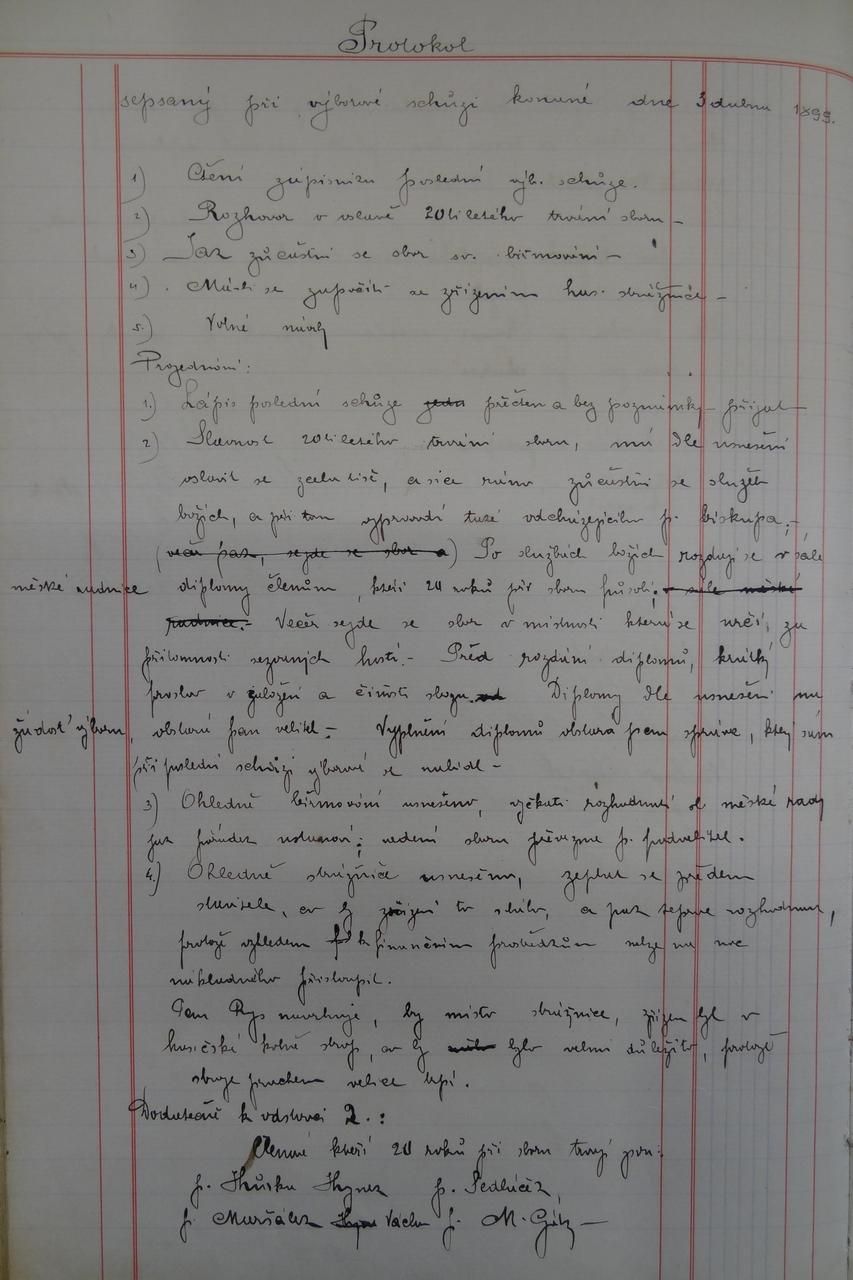 Protokol
sepsaný při výborové schůzi konané dne 3 dubna 1899.
1) Čtení zápisníku poslední výb. schůze.
2) Rozhovor o oslavě 20ti letého trvání sboru –
3) Jak zúčastní se sbor sv. biřmování –
4) Má-li se započíti se zřízením has. zbrojnice –
5.) Volné návrhy
Projednání:
1.) Zápis poslední schůze přečten a bez poznámky přijat
2) Slavnost 20ti letého trvání sboru, má dle usnesení
oslavit se zcela tiše, a sice ráno zúčastní se služeb
božích, a při tom vyprovodí také odcházejícího p. biskupa, –
(večer pak, sejde se sbor a) Po službách božích rozdají se v sále
městské radnice diplomy členům, kteří 20 roků při sboru působí; v sále městské
radnice. – Večer sejde se sbor v místnosti která se určí, za
přítomnosti sezvaných hostí. – Před rozdání diplomů, krátký
proslov o založení a činosti sboru. Diplomy dle usnesení na
žádost výboru, obstará pan velitel – Vyplnění diplomů obstará pan správce, který sám
při poslední schůzi výborové se nabídl –
3) Ohledně biřmování usneseno, vyčkati rozhodnutí od městské rady
jak pořádek ustanoví; vedení sboru převezme p. podvelitel.
4.) Ohledně zbrojnice usneseno, zeptat se předem
stavitele, co by zřízení to stálo, a pak teprve rozhodnout,
protož vzhledem k finančním prostředkům nelze na nic
nákladného přistoupit.
Pan Rys navrhuje, by místo zbrojnice, zřízen byl v
hasičské kolně strop, co by bylo velmi důležito, protož
stroje prachem velice trpí.
Dodatečně k odstavci 2. :
Členové kteří 20 roků při sboru trvají jsou:
p. Hůrka Hynek p. Sedláček,
p. Maršálek Václav p. M. Götz –